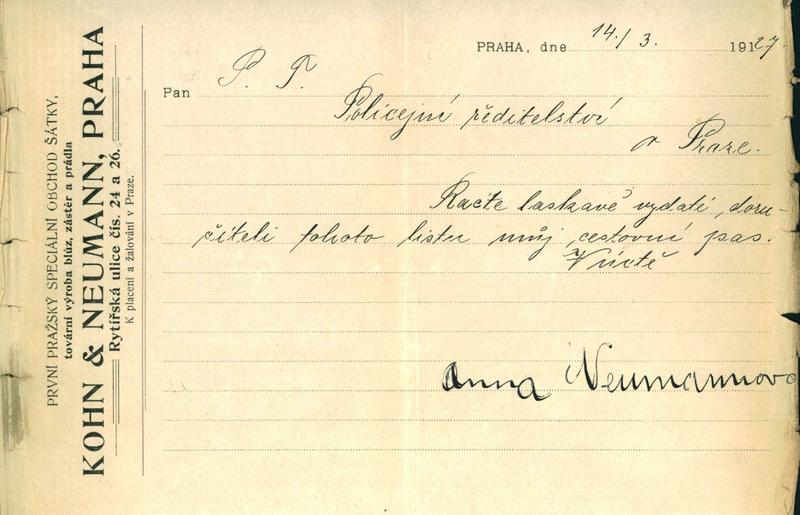 PRVNÍ PRAŽSKÝ SPECIÁLNÍ OBCHOD ŠÁTKY,
tovární výroba blúz, zástěr a prádla
KOHN & NEUMANN, PRAHA
Rytířská ulice čís. 24 a 26.
K placení a žalování v Praze.
PRAHA, dne 14./3. 19127.
Pan P. T.
Policejní ředitelství
v Praze.
Račte laskavě vydati, doru-
čiteli tohoto listu můj cestovní pas.
V úctě
Anna Neumannova